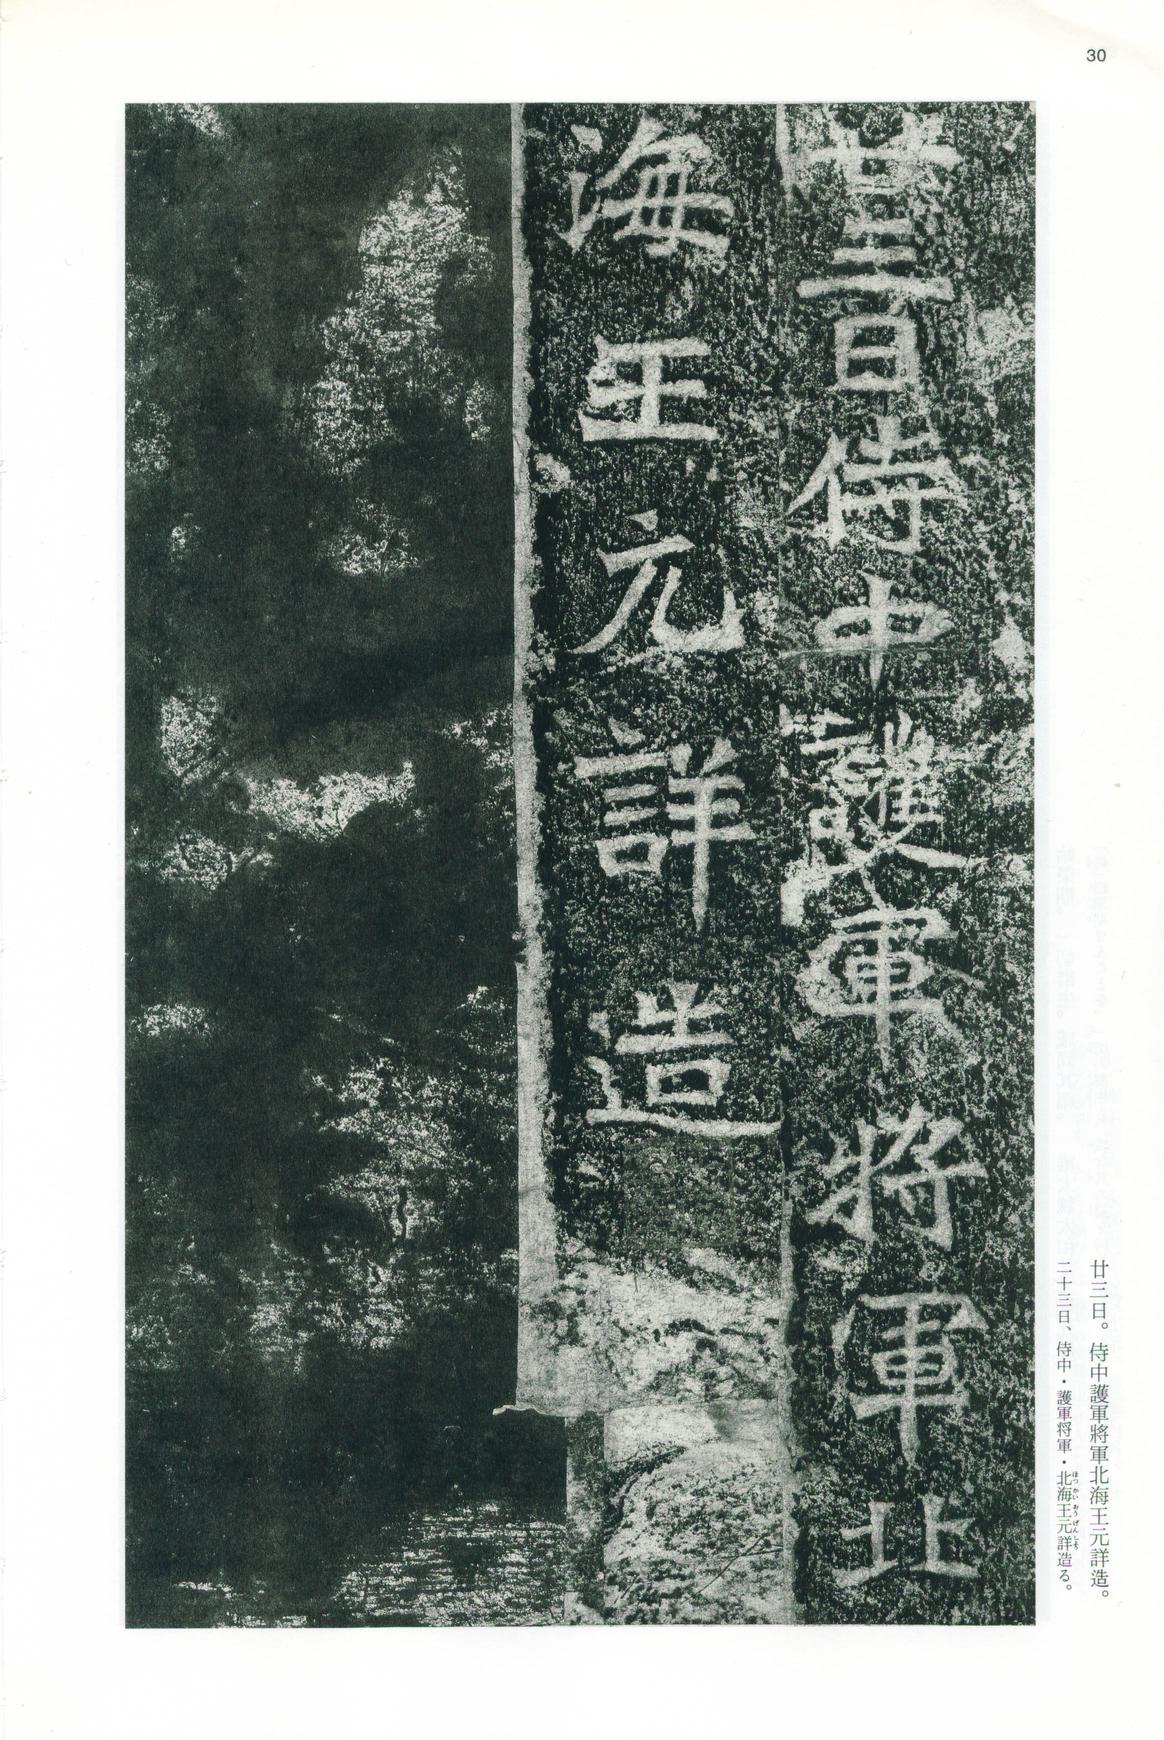 30
廿三日侍中護軍將軍北
海王元詳造
廿三日。侍中護軍將軍北海王元詳造。
二十三日、侍中・護軍将軍・北海王元詳造る。
ほっかいおうげんしょう